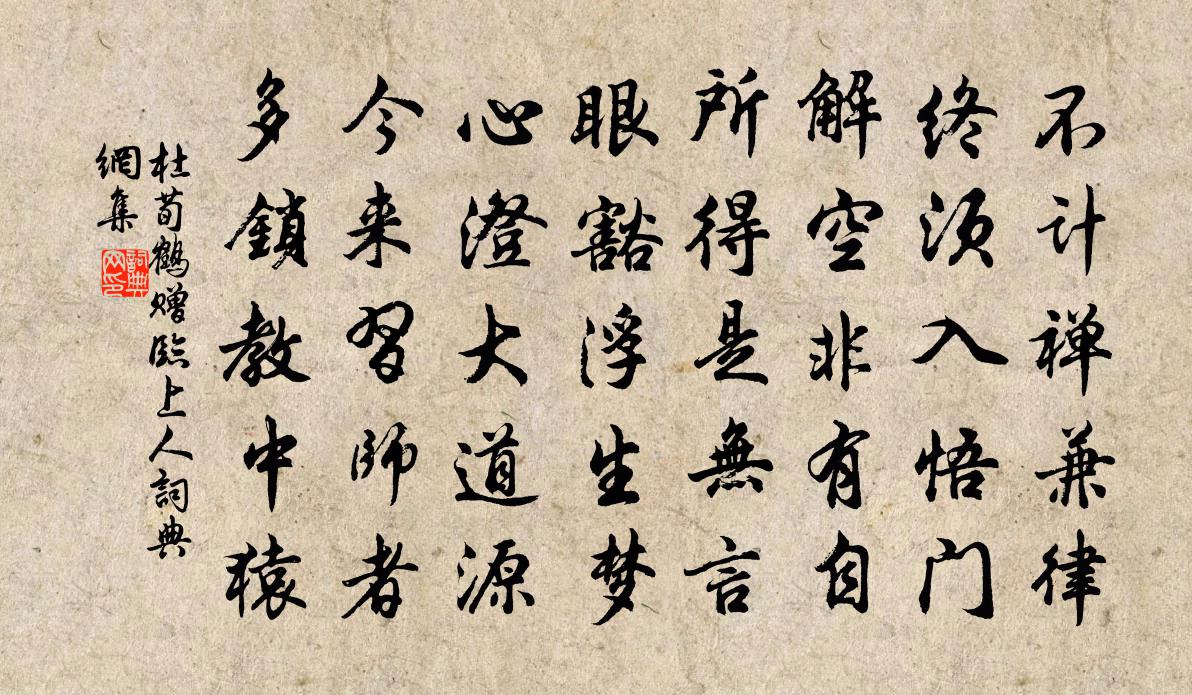 不计禅兼律
终须入悟门
解空非有自
所得是無言
眼豁浮生梦
心澄大道源
今来習师者
多鎖教中猿
杜荀鹤赠臨上人詞典
網集
詞典
网印